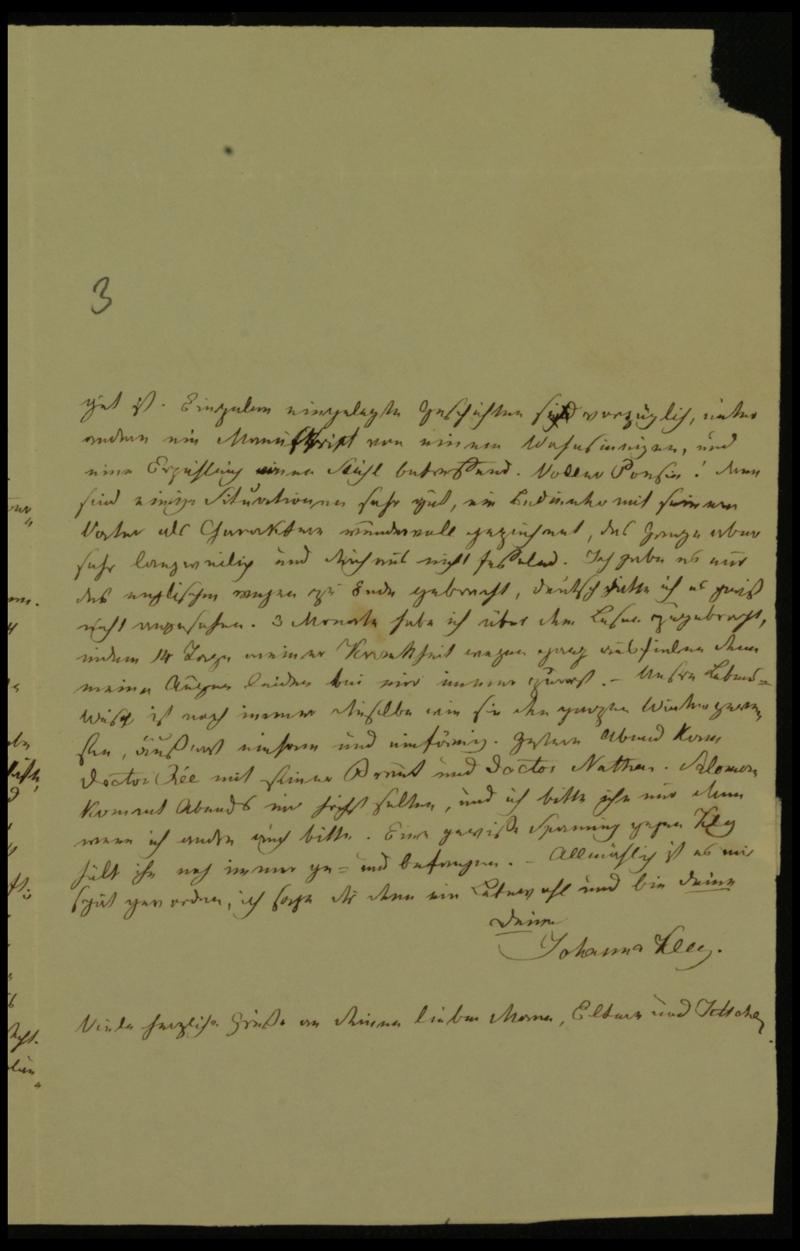 3
gut ist. Einzelne eingelegte Geschichten sind vorzüglich, unter
andern ein Manuskript von einem Wahnsinnigen, und
eine Erzählung einen Stuhl betreffend. Voller Poesie! dann
sind einige Situationen sehr gut, ein Bedienter mit seinem
Vater als Charaktere wundervoll gezeichnet, das Ganze aber
sehr langweilig und durchaus nicht fesselnd. Ich habe es nur
des englischen wegen zu Ende gebracht, deutsch hätte ich es gewiß
nicht angesehen. 3 Monate habe ich über dem Lesen zugebracht,
indem 14 Tage meiner Krankheit wegen ganz ausfielen denn
meine Augen leiden bei mir immer zuerst. – Unsre Lebens=
weise ist noch immer dieselbe wie sie den ganzen Winter gewe
sen, äußerst einsam und einförmig. Gestern Abend kam
Doctor Rée mit seiner Braut und Doctor Nathan. Salomon
kommt Abends nur höchst selten, und ich bitte ihn nur dann
wenn ich andre auch bitte. Eine gewisse Spannung gegen Kley
hält ihn noch immer ge= und befangen. – Allmählig ist es mir
spät geworden, ich sage dir denn ein Lebewohl und bin deine
Deine
Johanna Kley.
Viele herzliche Grüße an deinen lieben Mann, Eltern und